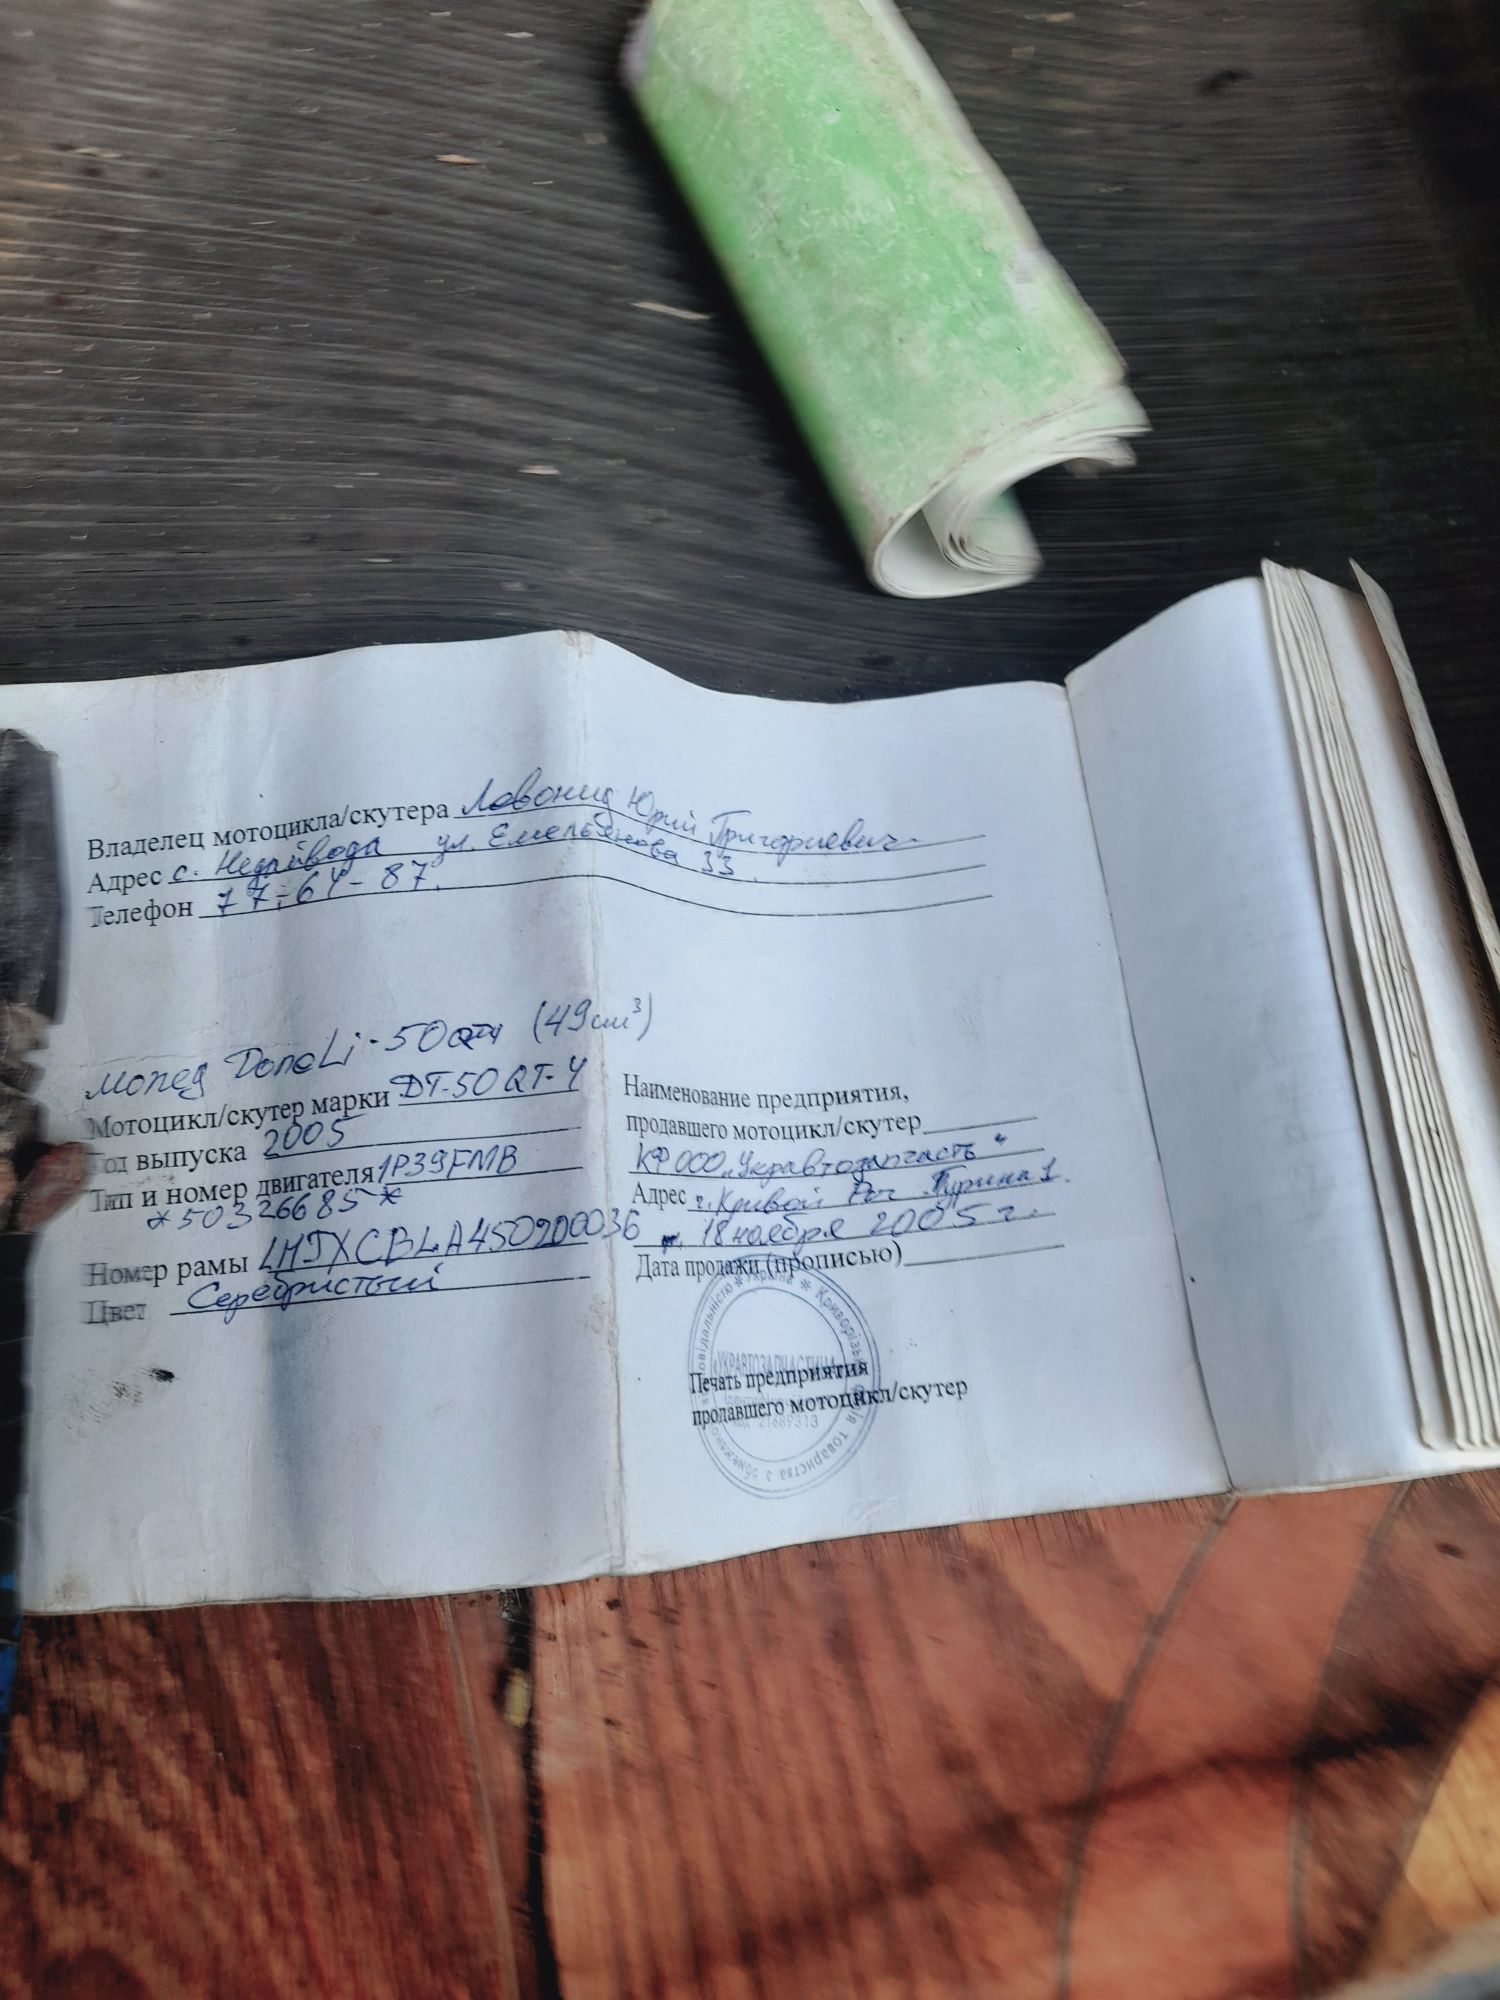 Владелец мотоцикла/скутера Лавониц Юрий Григориевич.
Адрес с. Недайвода ул. Емельянова 33.
Телефон 77-64-87.
Мопед DoneLi-50QT4 (49см³)
Мотоцикл/скутер марки DT-50QT-4
Год выпуска 2005
Тип и номер двигателя 1P39FMB
*50326685*
Номер рамы LHJXCBLA450200036
Цвет Серебристый
Наименование предприятия,
продавшего мотоцикл/скутер
КФ ООО „Укравтозапчасть"
Адрес г. Кривой Рог 1.
18 ноября 2005 г.
Дата продажи (прописью)
Печать предприятия
продавшего мотоцикл/скутер
* Україна * Криворізька філія товариства з обмеженою відповідальністю
УКРАВТОЗАПЧАСТИНА
код 21689313